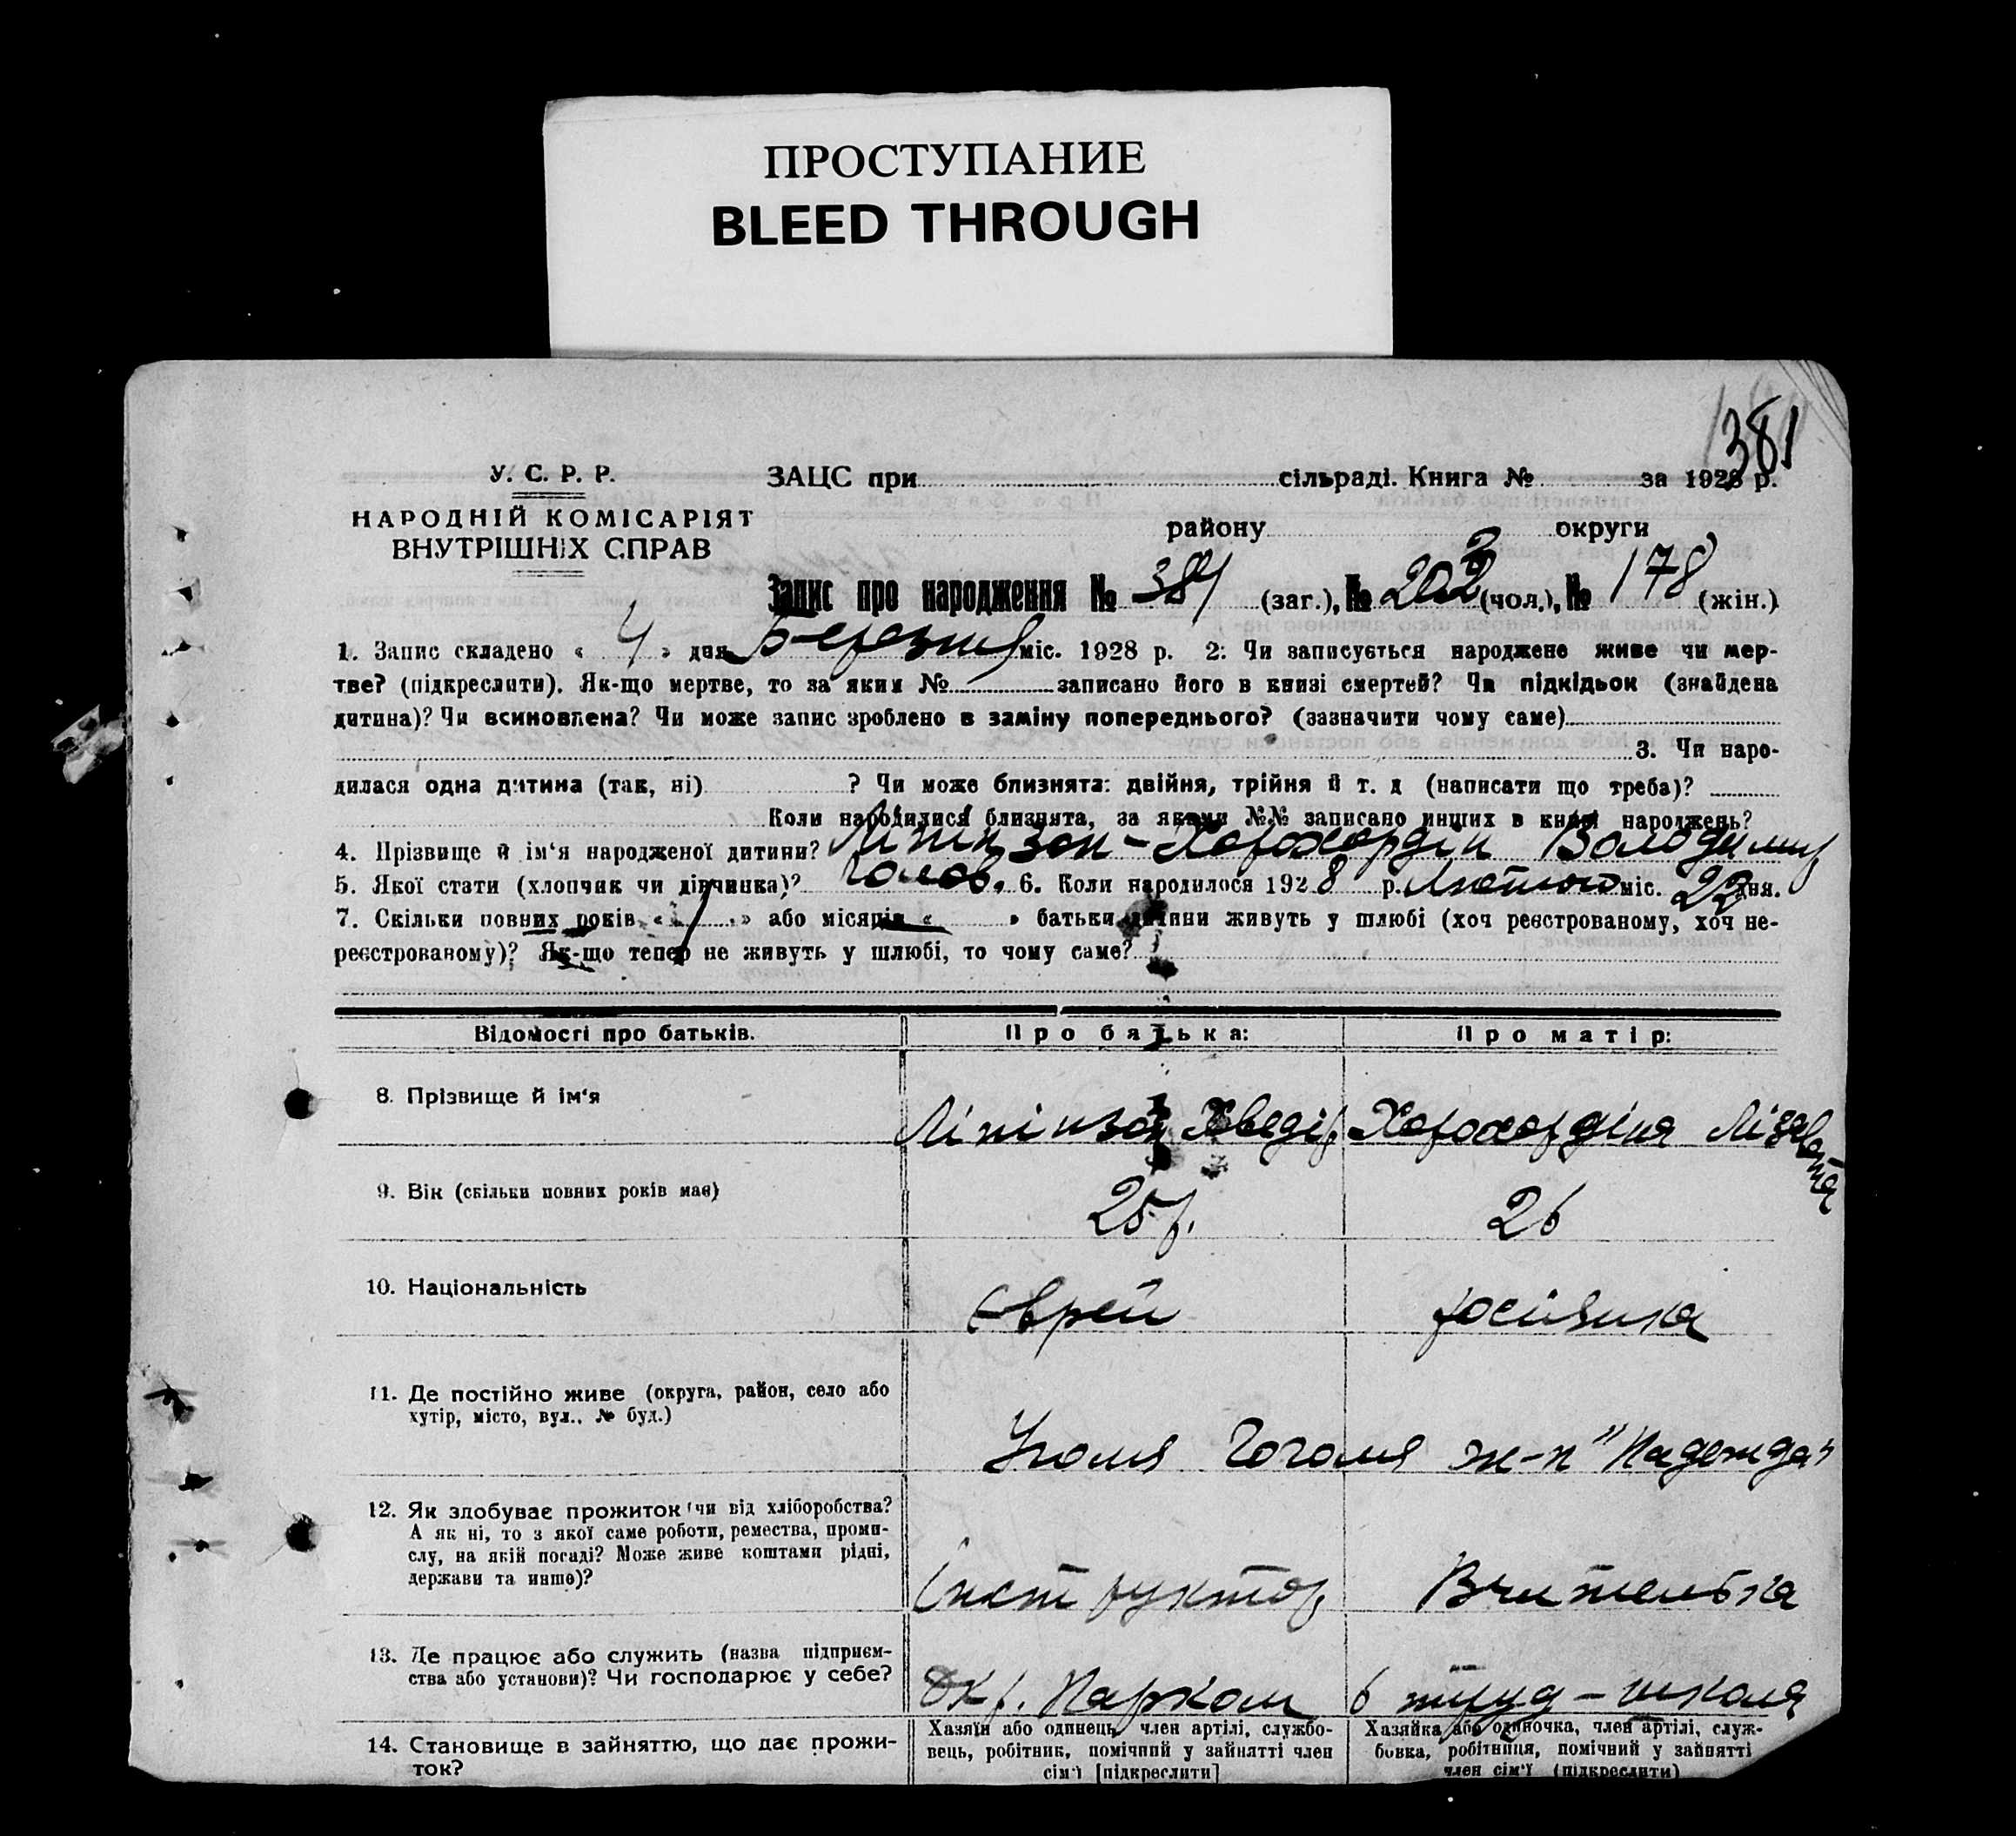 ПРОСТУПАНИЕ
BLEED THROUGH
381
У. С. Р. Р.
НАРОДНІЙ КОМІСАРІЯТ
ВНУТРІШНІХ СПРАВ
ЗАЦС при сільраді. Книга № за 1928 р.
району округи
Запис про народження № 381 (заг.), № 203 (чол.), № 178 (жін.)
1. Запис складено « 4 » дня Березня міс. 1928 р. 2: Чи записується народжене живе чи мер-
тве? (підкреслити). Як-що мертве, то за яким № записано його в книзі смертей? Чи підкідьок (знайдена
дитина)? Чи всиновлена? Чи може запис зроблено в заміну попереднього? (зазначити чому саме)
3. Чи наро-
дилася одна дитина (так, ні) ? Чи може близнята: двійня, трійня й т. д (написати що треба)?
Коли народилися близнята, за якими №№ записано инших в книзі народжень?
4. Прізвище й ім'я народженої дитини? Ліпінзон-Хорохордін Володимир
5. Якої стати (хлопчик чи дівчинка)? Чолов. 6. Коли народилося 1928 р. Лютого міс. 22 дня.
7. Скільки повних років « 1 » або місяців « » батьки дитини живуть у шлюбі (хоч реєстрованому, хоч не-
реєстрованому)? Як-що тепер не живуть у шлюбі, то чому саме?
Відомості про батьків. Про батька: Про матір:
8. Прізвище й ім'я Ліпінзон Хведір Хорохордіна Лізавета
9. Вік (скільки повних років має) 25 р. 26
10. Національність Єврей росіянка
11. Де постійно живе (округа, район, село або
хутір, місто, вул., № буд.)
Гоголя ж-п "Надежда"
12. Як здобуває прожиток (чи від хліборобства?
А як ні, то з якої саме роботи, ремества, проми-
слу, на якій посаді? Може живе коштами рідні,
держави та инше)?
Інструктор Вчителька
13. Де працює або служить (назва підприєм-
ства або установи)? Чи господарює у себе?
Окр. Парком 6 труд-школа
14. Становище в зайняттю, що дає прожи-
ток?
Хазяїн або одинець, член артілі, службо-
вець, робітник, помічний у зайнятті член
сім'ї [підкреслити]
Хазяйка або одиночка, член артілі, служ-
бовка, робітниця, помічний у зайнятті
член сім'ї (підкреслити)